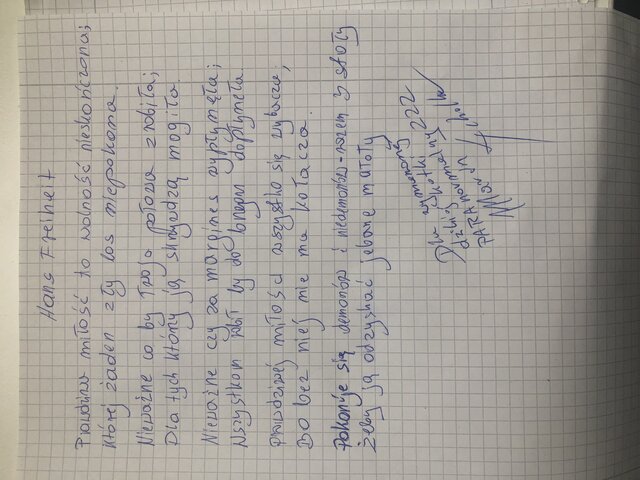 Hans Freiheit
Prawdziwa miłość to wolność nieskończona;
której żaden zły los niepokona.
Nieważne co by Twoja połowa zrobiła;
Dla tych którzy ją skrzywdzą mogiła
Nieważne czy za margines wypłynęła;
Wszystkom robił by do brzegu dopłynęła.
Prawdziwej miłości wszystko się wybacza;
Bo bez niej nie ma kołacza.
Pokonuje się demonów i niedemonów-razem 3 stoły
Żeby ją odzyskać jebane matoły
Dla wymarzonej
kotki 222
dzikiej
normalny
PARA